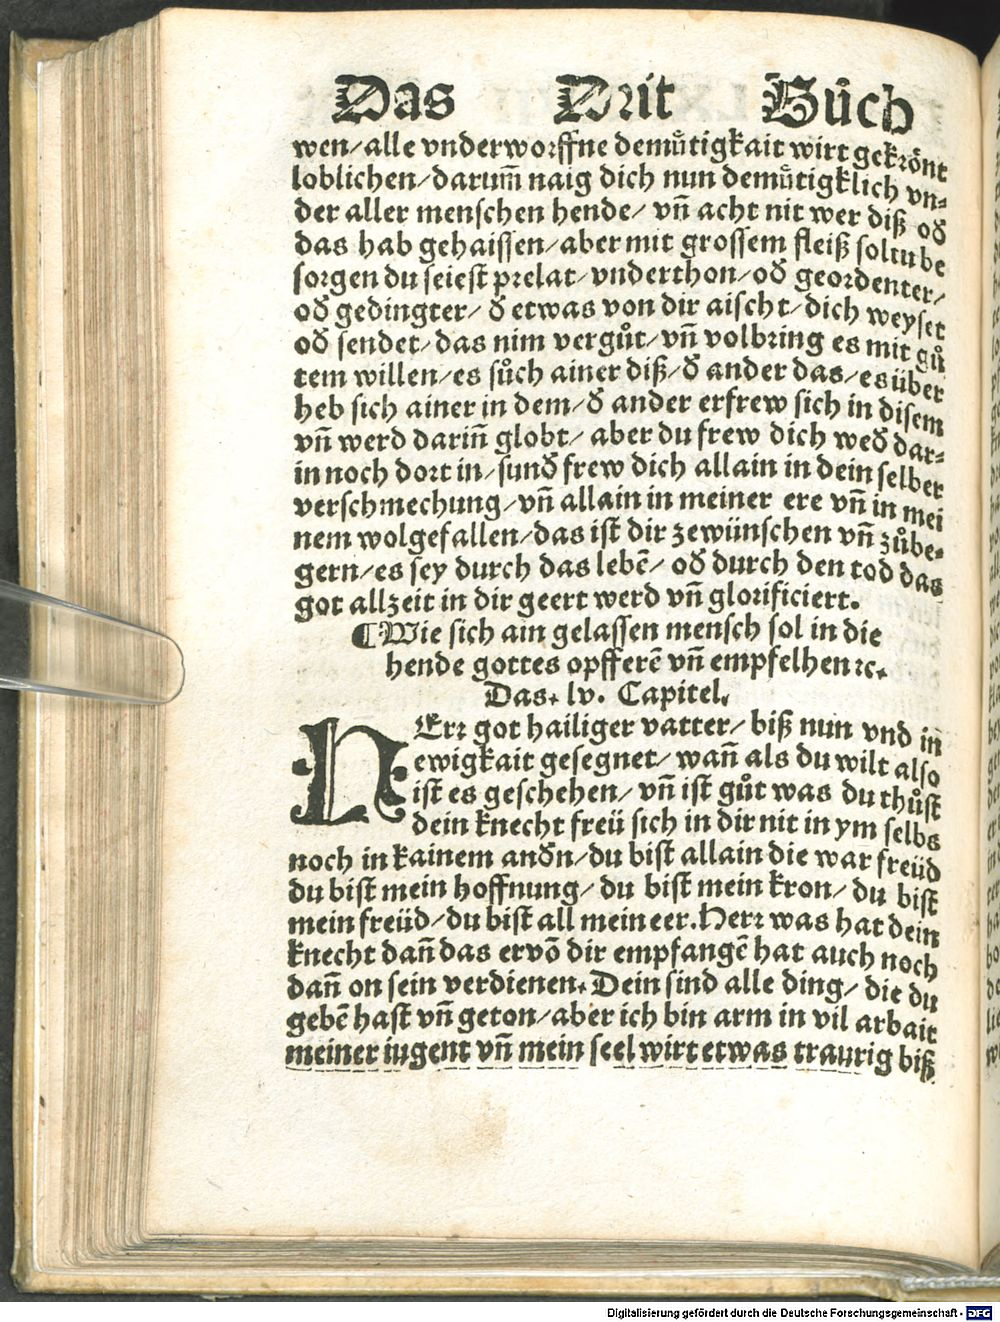 Das Drit Bůch
wen/alle vnderworffne demůtigkait wirt gekrönt
loblichen/darum̃ naig dich nun demůtigklich vn⸗
der aller menschen hende/ vñ acht nit wer diß oď
das hab gehaissen/aber mit grossem fleiß soltu be
sorgen du seiest prelat/vnderthon/oď geordenter/
oď gedingter/ ď etwas von dir aischt/dich weyset
oď sendet/das nim vergůt/vñ volbring es mit gů
tem willen/es sůch ainer diß/ď ander das/es über
heb sich ainer in dem/ď ander erfrew sich in disem
vñ werd dariñ globt/ aber du frew dich weď dar⸗
in noch dort in/sunď frew dich allain in dein selber
verschmechung/vñ allain in meiner ere vñ in mei
nem wolgefallen/das ist dir zewünschen vñ zůbe⸗
gern/es sey durch das lebẽ/ oď durch den tod das
got allzeit in dir geert werd vñ glorificiert.
¶Wie sich ain gelassen mensch sol in die
hende gottes opfferẽ vñ empfelhen ꝛc.
Das. lv. Capitel.
HErꝛ got hailiger vatter/ biß nun vnd in
ewigkait gesegnet/ wañ als du wilt also
ist es geschehen/ vñ ist gůt was du thůst
dein knecht freü sich in dir nit in ym selbs
noch in kainem anďn/du bist allain die war freüd
du bist mein hoffnung/du bist mein kron/ du bist
mein freüd/du bist all mein eer. Herꝛ was hat dein
knecht dañ das er võ dir empfangẽ hat auch noch
dañ on sein verdienen. Dein sind alle ding/ die du
gebẽ hast vñ geton/aber ich bin arm in vil arbait
meiner iugent vñ mein seel wirt etwas traurig biß
Digitalisierung gefördert durch die Deutsche Forschungsgemeinschaft - DFG